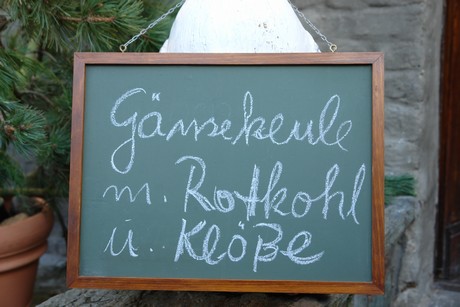 Gänsekeule
m. Rotkohl
u. Klöße